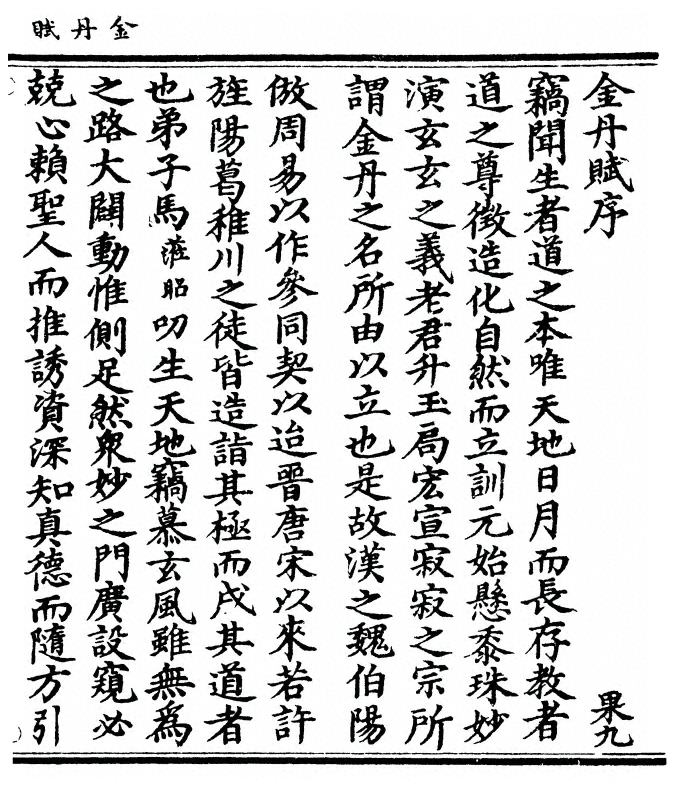 金丹賦
金丹賦序
果九
竊聞生者道之本唯天地日月而長存教者
道之尊徵造化自然而立訓元始懸黍珠妙
演玄玄之義老君升玉局宏宣寂寂之宗所
謂金丹之名所由以立也是故漢之魏伯陽
倣周易以作參同契以迨晉唐宋以來若許
旌陽葛稚川之徒皆造詣其極而成其道者
也弟子馬蒞昭叨生天地竊慕玄風雖無為
之路大闢動惟側足然衆妙之門廣設窺必
兢心賴聖人而推誘資深知真德而隨方引